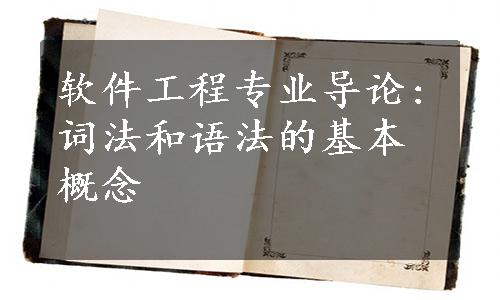 软件工程专业导论:
词法和语法的基本
概念